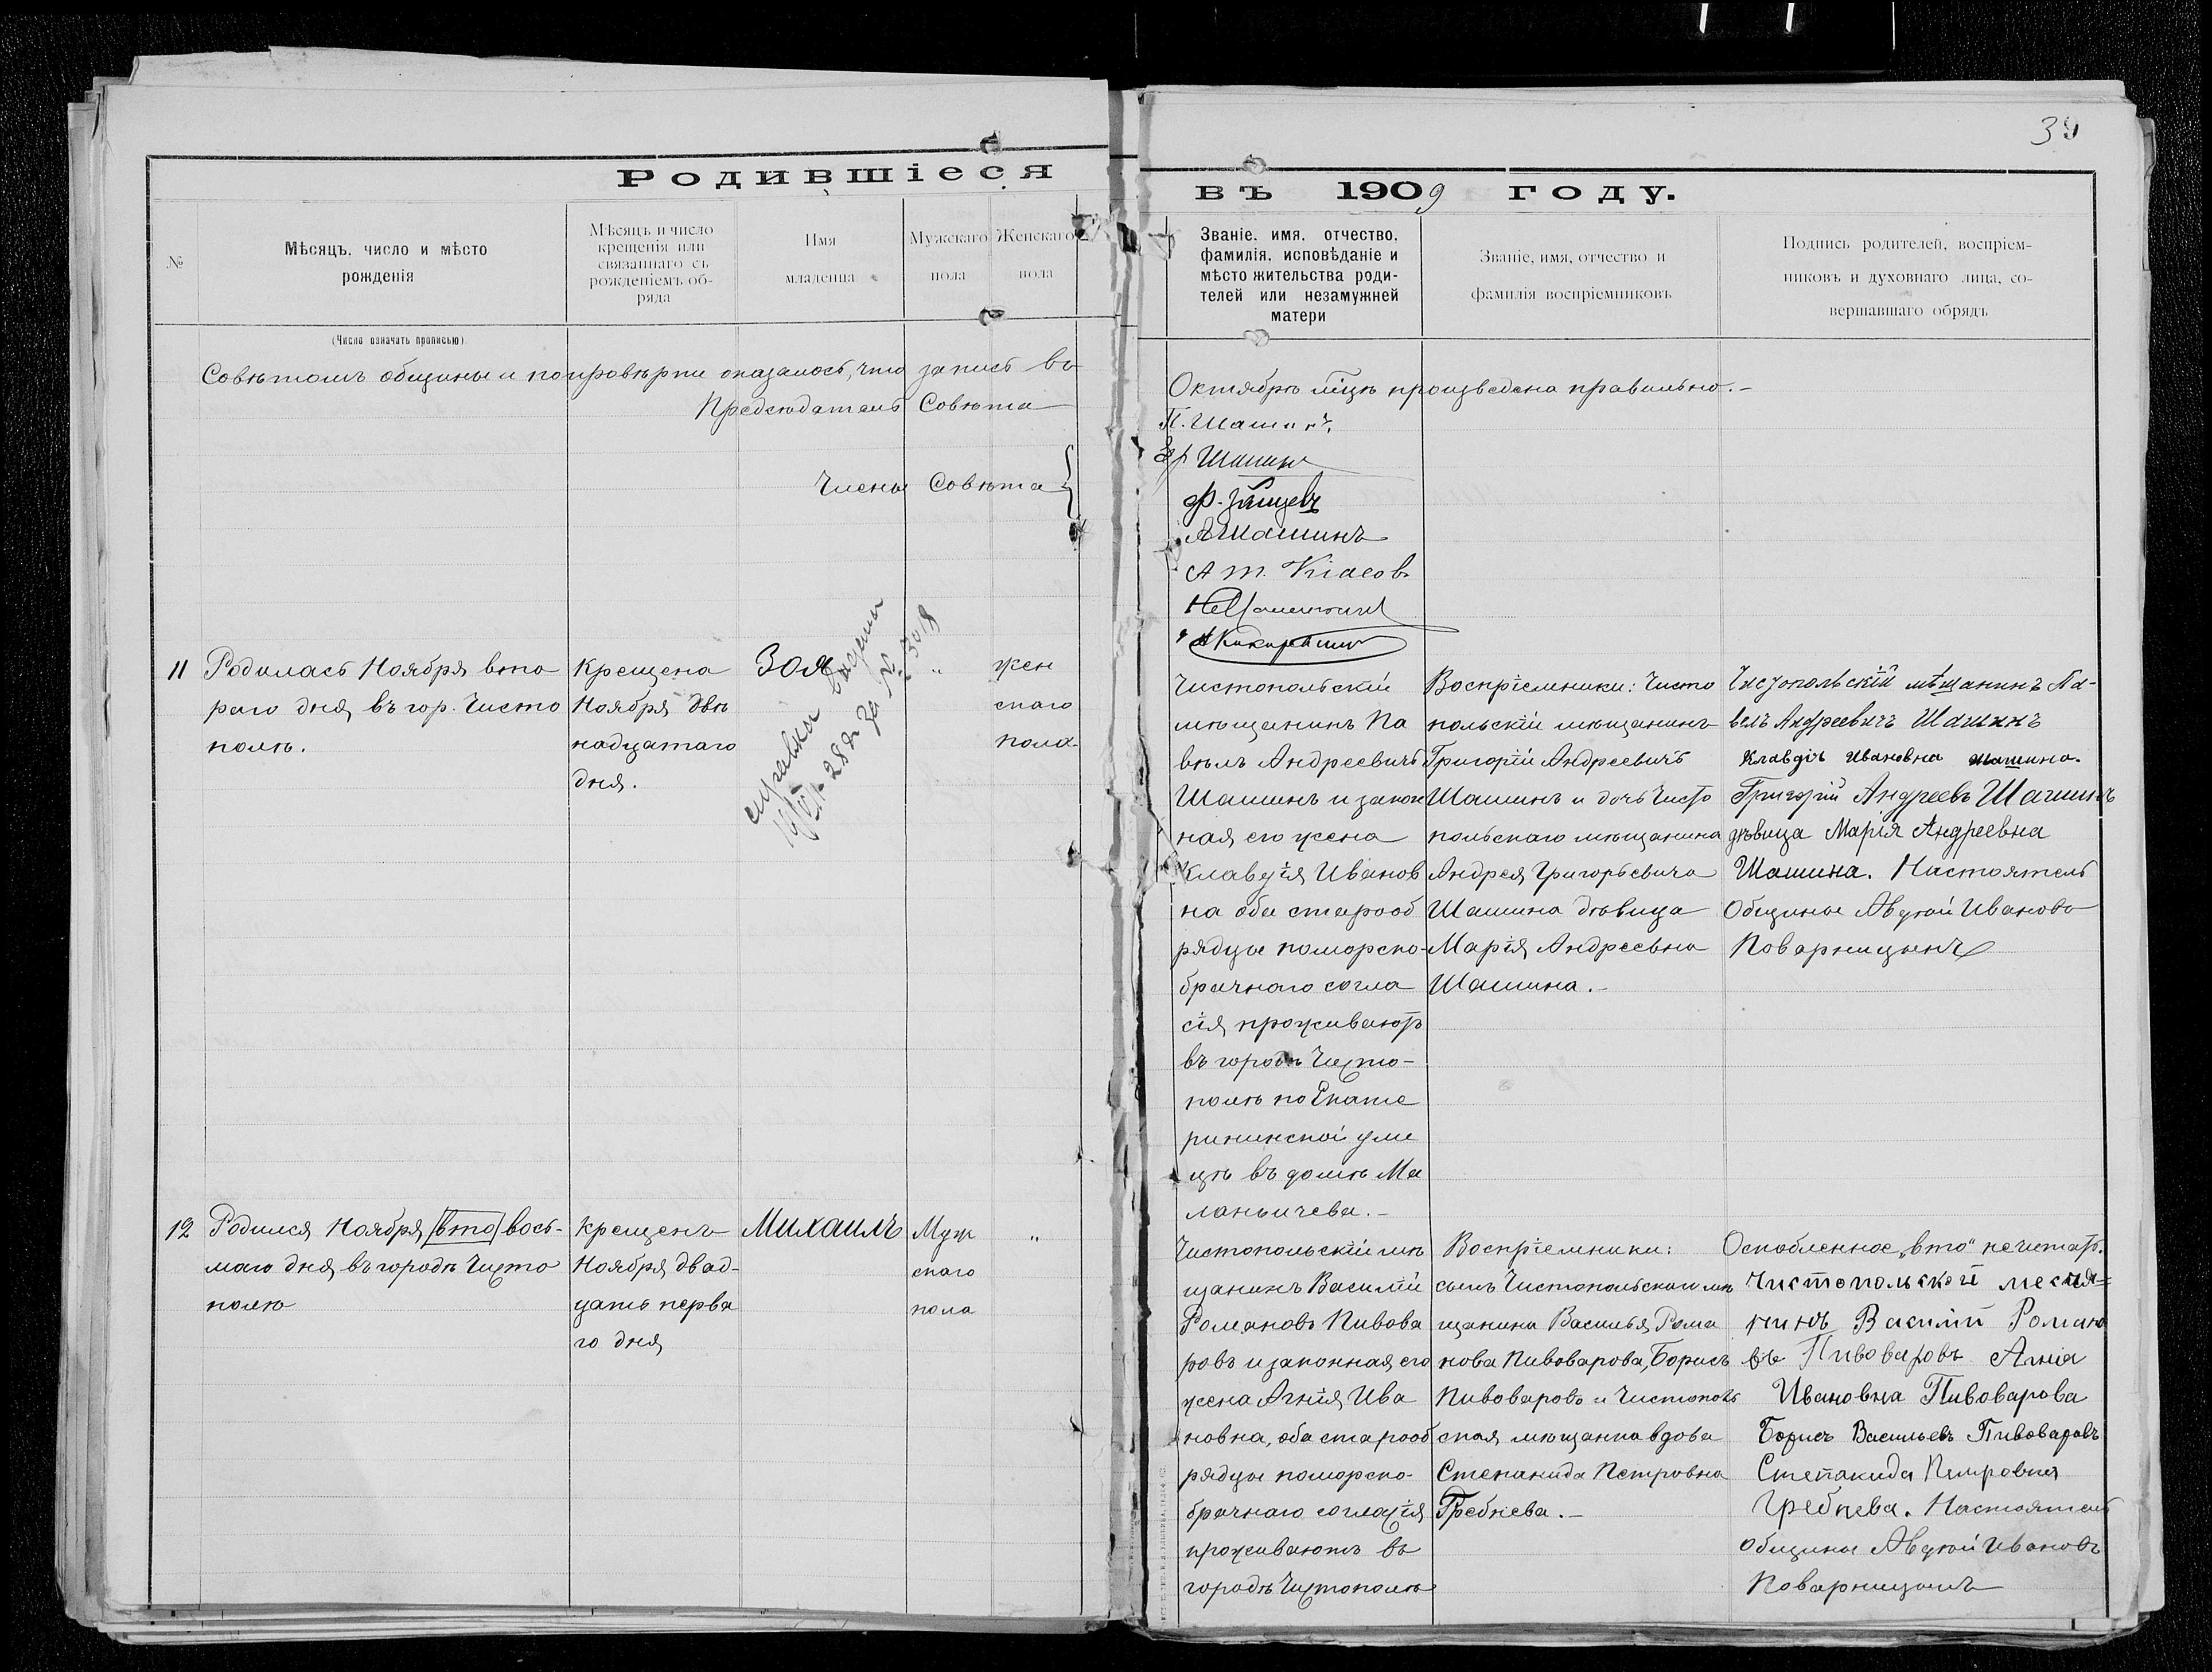 39
Родившіеся
въ 1909 году.
№
Мѣсяцъ, число и мѣсто
рожденія
Мѣсяцъ и число
крещенія или
связаннаго съ
рожденіемъ об-
ряда
Имя
младенца
Мужскаго
пола
Женскаго
пола
Званіе, имя, отчество,
фамилія, исповѣданіе и
мѣсто жительства роди-
телей или незамужней
матери
Званіе, имя, отчество и
фамилія воспріемниковъ
Подпись родителей, воспріем-
никовъ и духовнаго лица, со-
вершавшаго обрядъ
(Числа означать прописью)
Совѣтомъ общины и по провѣрки оказалось, что запись въ
Октябрѣ м̃цѣ произведена правильно.-
Предсѣдатель Совѣта
П. Шашинъ.
Члены Совѣта
Шашинъ
Ф. Зайцевъ
А Шашинъ
11
Родилась Ноября вто
раго дня, въ гор. Чисто
полѣ.
Крещена
Ноября двѣ
надцатаго
дня.
Зоя
справки выданы
28 г за № 3018
"
жен
скаго
пола.
Чистопольскій
мѣщанинъ Па
вѣлъ Андреевичъ
Шашинъ и закон
ная его жена
Клавдія Иванов
на оба старооб
рядцы поморско-
брачнаго согла
сія, проживаютъ
въ городѣ Чисто-
полѣ по Екате
рининской ули
цѣ въ домѣ Ма
ланьичева.-
Воспріемники: Чисто
польскій мѣщанинъ
Григорій Андреевичъ
Шашинъ и дочь Чисто
польскаго мѣщанина
Андрея Григорьевича
Шашина дѣвица
Марія Андреевна
Шашина.-
Чистопольскій мѣщанинъ Па-
велъ Андреевичъ Шашинъ
Клавдія Ивановна Шашина.
Григорій Андреевъ Шашинъ
дѣвица Марія Андреевна
Шашина. Настоятель
Общины Авдѣй Ивановъ
Поварницынъ
12
Родился Ноября [вто] вось-
маго дня, въ городѣ Чисто
полѣ
Крещенъ
Ноября двад-
цать перва
го дня
Михаилъ
Муж
скаго
пола
"
Чистопольскій мѣ
щанинъ Василій
Романовъ Пивова
ровъ и законная его
жена Агнія Ива
новна, оба старооб
рядцы поморско-
брачнаго согласія
проживаютъ въ
городѣ Чистополѣ
Воспріемники:
сынъ Чистопольскаго мѣ
щанина Василья Рома
нова Пивоварова, Борисъ
Пивоваровъ и Чистополь
ская мѣщанка вдова
Степанида Петровна
Гребнева.-
Оскобленное „вто" не читать.
Чистопольской меща=
нинъ Василій Романо
въ Пивоваровъ Агнія
Ивановна Пивоварова
Борисъ Васильевъ Пивоваровъ
Степанида Петровна
Гребнева. Настоятель
Общины Авдѣй Ивановъ
Поварницынъ